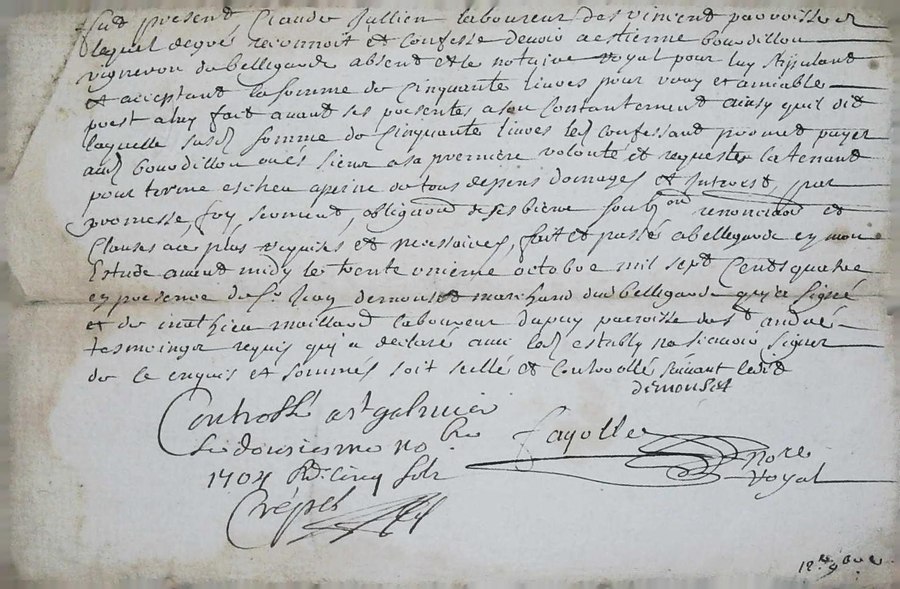 fut présent, Claude Jullien laboureur de st vincent parroisse
lequel de gré reconnoit et confesse devoir a estienne bourdillon
vigneron du bellegarde absent et le notaire royal pour luy stipulant
et acceptant la somme de Cinquante livres pour vray et amiable
prest a luy fait avant ses presentes, a son Contantement ainsy qu'il dit
laquelle susd somme de Cinquante livres led confessant promet payer
aud bourdillon ou es siens a sa premiere volonté et requeste la tenant
pour terme escheu a peine de tous despens domages et interest, par
promesse, foy, serment, obligaon de ses biens renonciaon et
Clauses a ce plus requises et necessaires, fait et passé a bellegarde en mon
Estude avant midy le trente unieme octobre mil sept Cents quatre
en presence de Sr demouset marchand dud bellegarde qui a signé
et de mathieu maillard laboureur du puy parroisse de st andré
tesmoings requis qui a declaré avec led estably ne sçavoir signer
de ce enquis et sommés soit scellé et Controollé suivant l'edit
demouset
Controllé a st galmier
le dousiesme 9bre
1704 Rd. cinq sols
fayolle
Nore
Royal
Crépet
12e 9bre